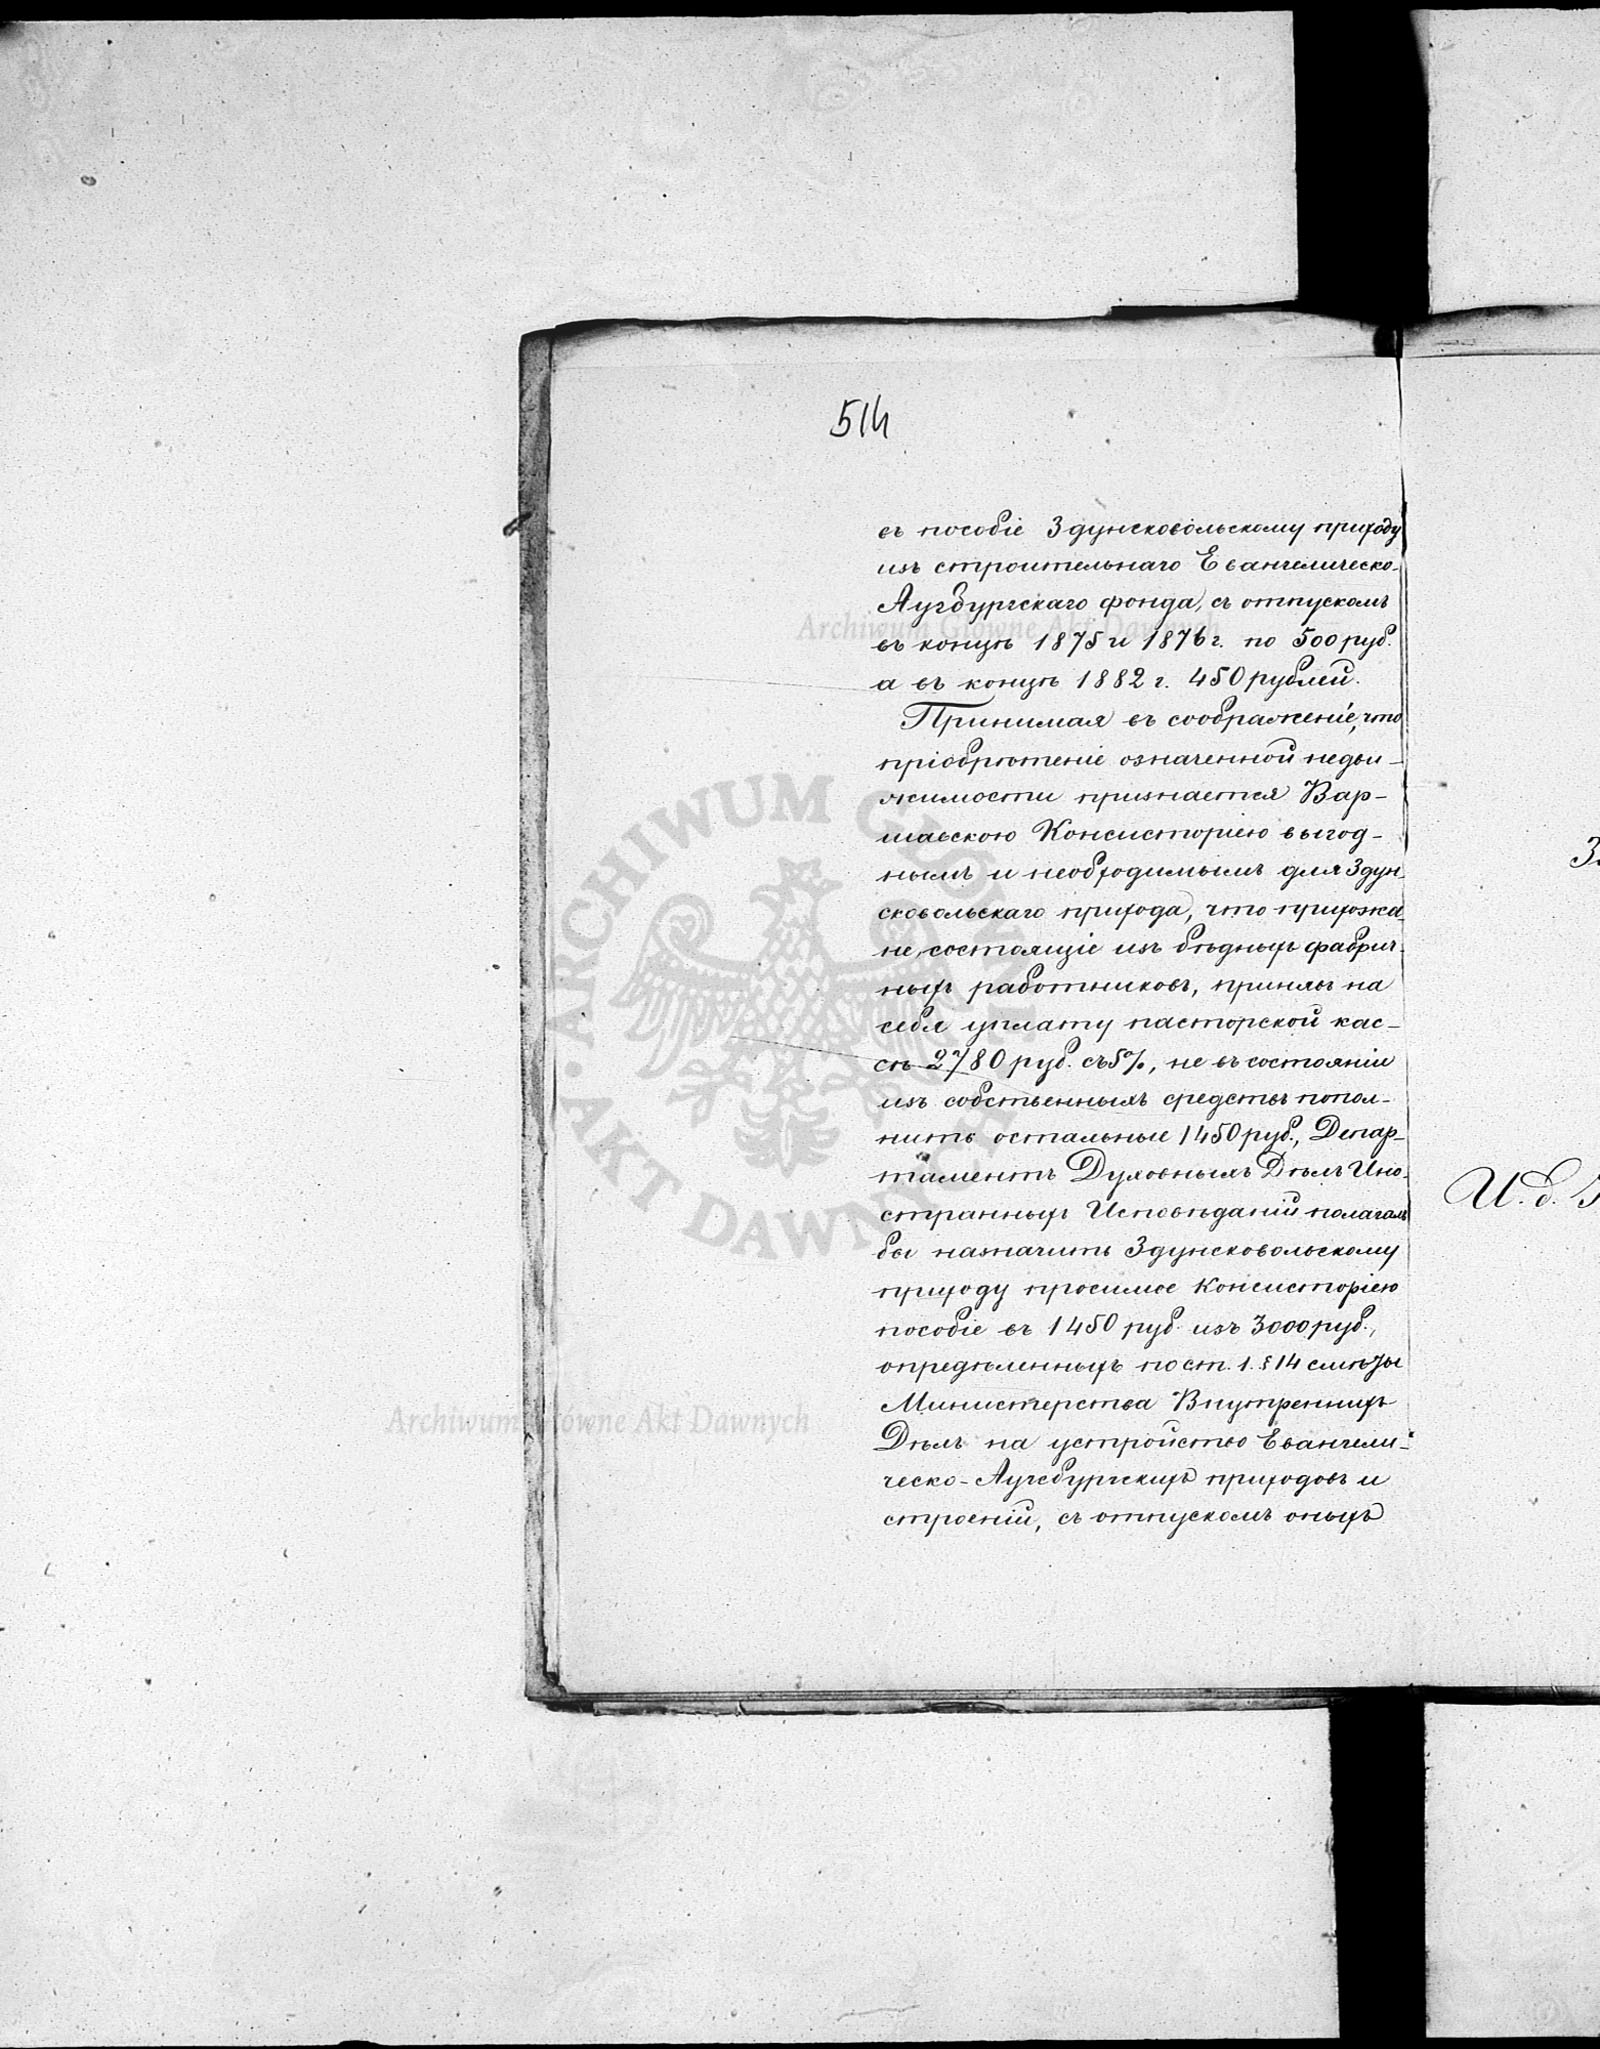 514
въ пособіе Здунсковольскому приходу
изъ строительнаго Евангелическо-
Аугбургскаго фонда, съ отпускомъ
въ концѣ 1875 и 1876 г. по 500 руб.
а въ концѣ 1882 г. 450 рублей.
Принимая въ соображеніе, что
пріобрѣтеніе означенной недви-
жимости признается Вар-
шавскою Консисторіею выгод-
нымъ и необходимымъ для Здун-
сковольскаго прихода, что прихожа-
не, состоящіе изъ бѣдныхъ фабрич-
ныхъ работниковъ, принявъ на
себя уплату пасторской кас-
сѣ 2780 руб. съ 5%, не въ состояніи
изъ собственныхъ средствъ попол-
нить остальные 1450 руб., Депар-
таментъ Духовныхъ Дѣлъ Ино-
странныхъ Исповѣданій полагалъ
бы назначить Здунсковольскому
приходу просимое Консисторіею
пособіе въ 1450 руб. изъ 3000 руб.,
опредѣленныхъ по ст. 1. § 14 смѣты
Министерства Внутреннихъ
Дѣлъ на устройство Евангели-
ческо-Аугсбургскихъ приходовъ и
строеній, съ отпускомъ оныхъ
И. д.
ARCHIWUM GŁÓWNE AKT DAWNYCH
Archiwum Główne Akt Dawnych
Archiwum Główne Akt Dawnych